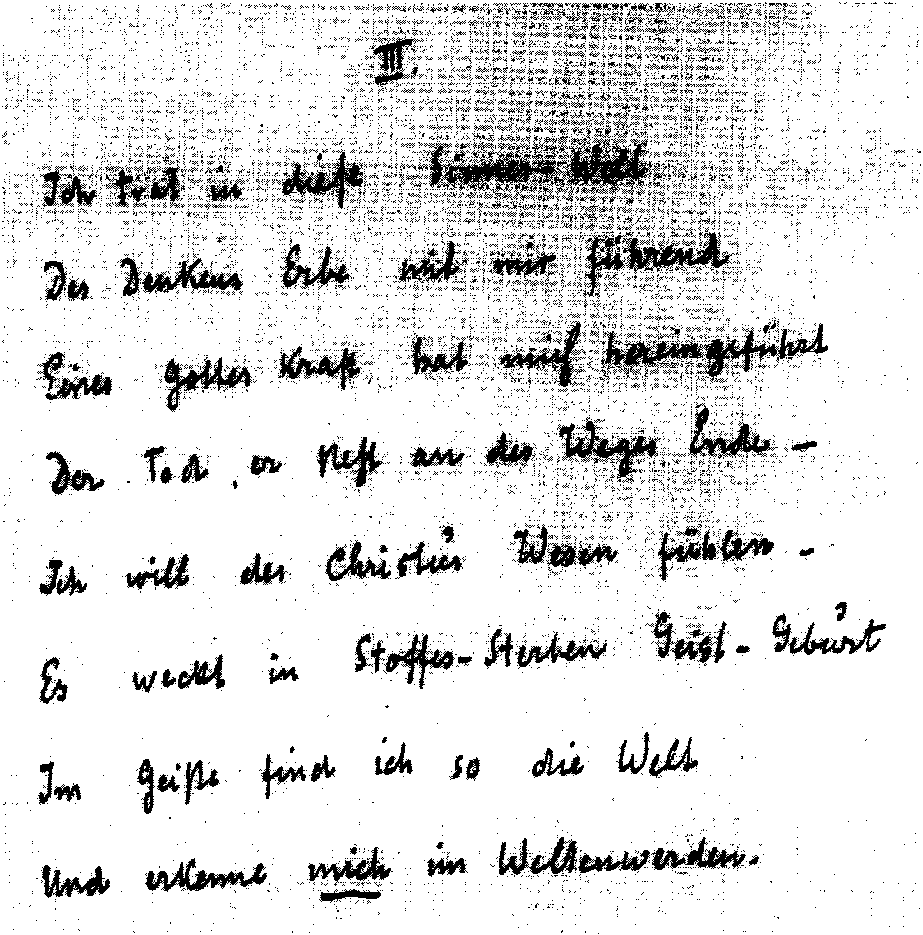 III.
Ich trat in diese Sinnes-Welt
Des Denkens Erbe mit mir führend
Eines Gottes Kraft hat mich hereingeführt
Der Tod, er steht an des Weges Ende –
Ich will des Christus Wesen fühlen –
Es weckt in Stoffes-Sterben Geist-Geburt
Im Geiste find ich so die Welt
Und erkenne mich im Weltenwerden.